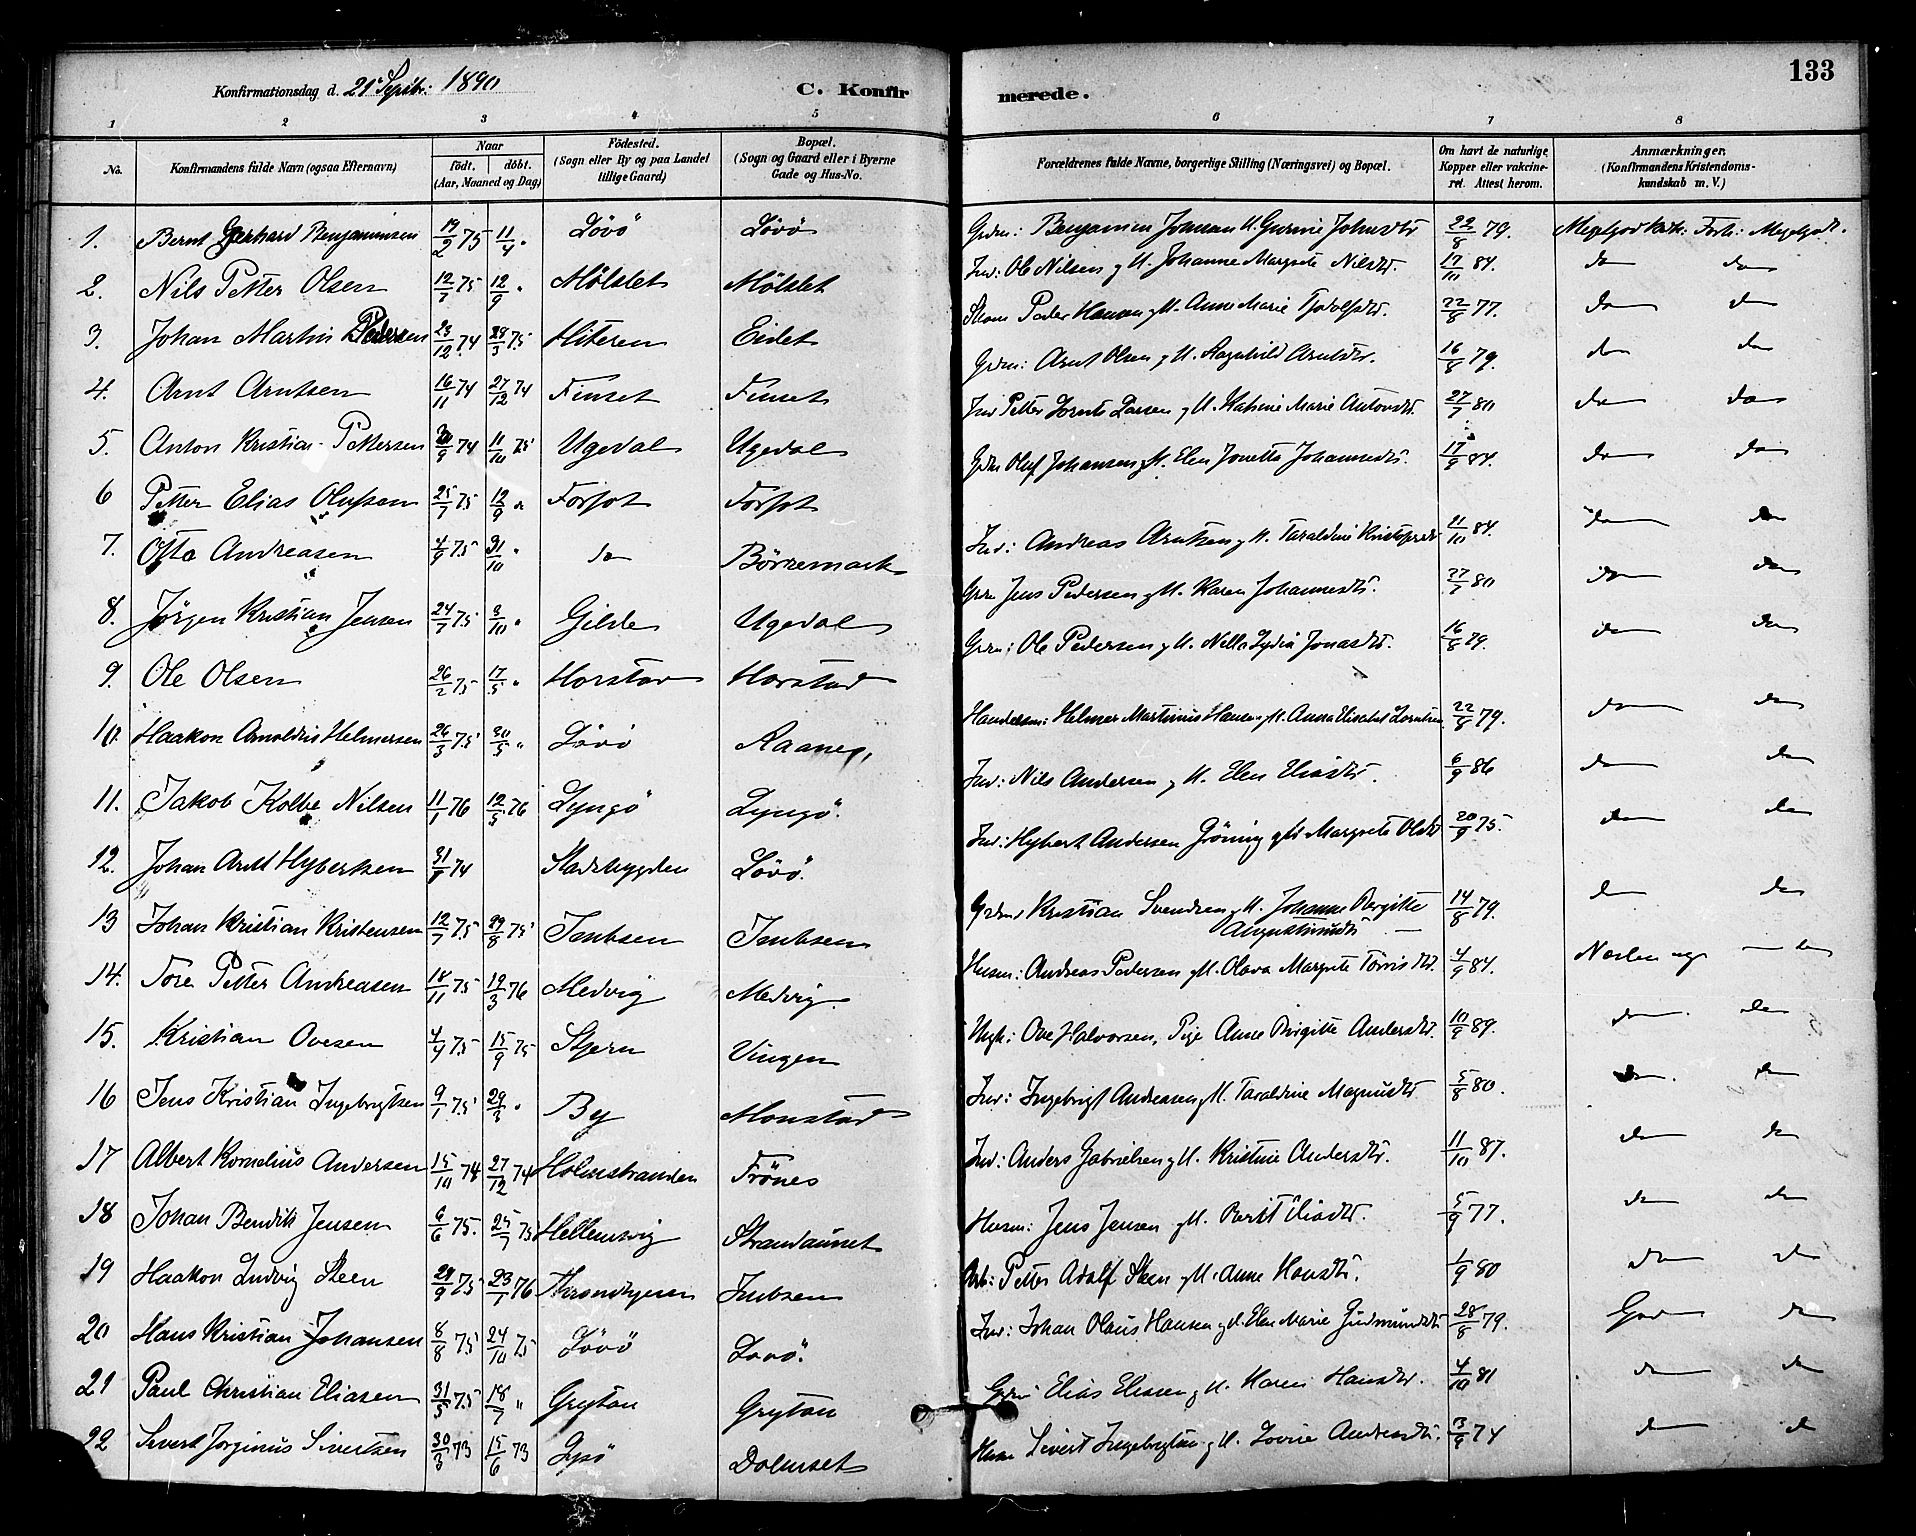 133
Konfirmationsdag d. 21 Septbr. 1890
C. Konfirmerede.
1 2 3 4 5 6 7 8
No.
Konfirmandens fulde Navn (ogsaa Efternavn)
Naar
födt. döbt.
(Aar, Maaned og Dag)
Födested.
(Sogn eller By og paa Landet
tillige Gaard)
Bopæl.
(Sogn og Gaard eller i Byerne
Gade og Hus-No.
Forældrenes fulde Navne, borgerlige Stilling (Næringsvei) og Bopæl.
Om havt de naturlige
Kopper eller vakcine-
ret. Attest herom.
Anmærkninger,
(Konfirmandens Kristendoms-
kundskab m. V.)
1. Bernt Gerhard Benjaminsen 19/2 75 11/4 " Lövö Lövö Grdm: Benjamin Johnsen M. Gurine Johnsdtr 22/8 79. Megetgod Forh: Megetgodt.
2. Nils Petter Olsen 12/7 75 12/9 " Mölslet Mölslet Ind: Ole Nilsen g M. Johanne Margrete Nilsdtr. 17/10 84. do do
3. Johan Martin Pedersen 23/12 74 28/3 75 Hiteren Eidet Peder Hansen g M. Anne Marie 22/8 77. do do
4. Arnt Arntsen 16/11 74 27/12 74 Finset Finset Grdm: Arnt Olsen g M. Ragnhild Arntsdtr. 16/8 79. do do
5. Anton Kristian Pettersen 74 11/10 75 Ugedal Ugedal Ind Petter Lornts Larsen g M. Katrine Marie Antonsdtr. 27/7 80 do do
6 Petter Elias Olufsen 25/7 75 12/9 " Forfot Forfot Grdm Oluf Johansen g M. Elen Jonette Johannesdtr. 17/9 84. do do
7. Otto Andreasen 4/9 75 31/10 " do Börremark Ind: Andreas Arntsen g M. Taraldine 21/10 84. do do
8. Jörgen Kristian Jensen 24/7 75 3/10 " Gilde Ugedal Grdm Jens Pedersen g M. Karen Johannesdtr. 27/7 80 do do
9. Ole Olsen 26/2 75 17/5 " Horstad Horstad Grdm: Ole Pedersen g M. Nella Lydia Jonasdtr. 16/8 79. do do
10. Haakon Arnoldus Helmersen 26/3 75 30/5 " Lövö Raanes, Handelsm: Helmer Martinus Hansen g M. Anna Elisabet Lorntsen 22/8 79. do do
11. Jakob Kolbe Nilsen 11/1 76 12/5 76 Lyngö Lyngö. Ind: Nils Andersen g M. Elen Eliasdtr. 6/9 86 do do
12. Johan Arnt Hybertsen 74 Stadsbygden Lövö. Ind: Hybert Andersen Gröning g M Margrete Olsdtr 20/9 75. do do
13 Johan Kristian Kristensen 12/7 75 29/8 75 Grdm: Kristian Svendsen g M. Johanne Bergitte
Augustinusdtr 14/8 79. do do
14. Tore Petter Andreasen 14/11 75 19/3 76 Medvig Medvig. Husm: Andreas Pedersen g M. Olava Margrete 4/9 84. Nærden mg do
15. Kristian Ovesen 4/4 75 15/9 75 Stjern Vingen Ungk: Ove Halvorsen, Pige Anne Birgitte Andersdtr. 10/9 89. do. do
16 Jens Kristian Ingebrigtsen 9/1 75 29/3 " By Monstad Ind: Ingebrigt Andreasen g M. Taraldine Magnusdtr 5/8 80. do. do
17 Albert Kornelius Andersen 15/10 74 27/12 74 Holmstranden Frönes Ind: Anders Gabrielsen g M. Kristine Andersdtr. 11/10 87. do do
18 Johan Bendik Jensen 6/6 75. 25/7 75 Hellemsvig Strandaunet Husm: Jens Jensen g M. Berit Eliasdtr. 5/9 77. do do
19 Haakon Ludvig Steen 29/9 75 23/1 76 Throndhjem Arb: Petter Adolf Steen g M. Anne Hansdtr. 1/9 80 do do
20 Hans Kristian Johansen 8/8 75 24/10 75 Lövö Lövö. Ind: Johan Olaus Hansen g M. Elen Marie Gudmundsdtr 28/8 79. God do
21 Paul Christian Eliasen 31/5 75 18/7 " Grytan Grytan Grdm: Elias Eliasen g M. Karen Hansdtr. 4/10 81 do do
22 Sivert Jörginus Sivertsen 30/3 73 15/6 73 Lysö Dolmset Husm Sivert Ingebrigtsen g M. Lovise Andreasdtr. 13/9 74 do do